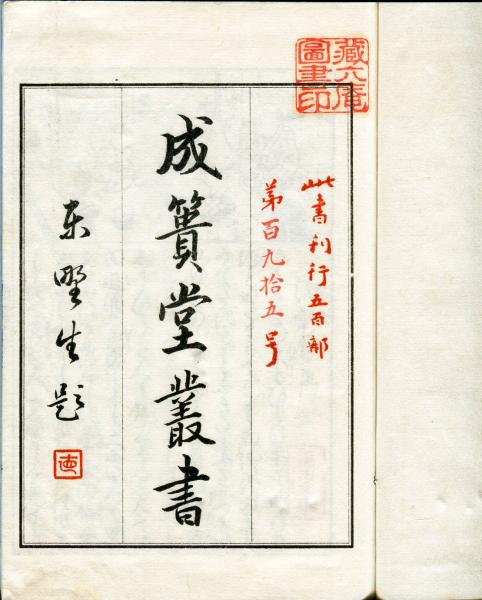 藏六庵
圖書印
此書刊行五百部
第百九拾五号
成簣堂叢書
東野生題